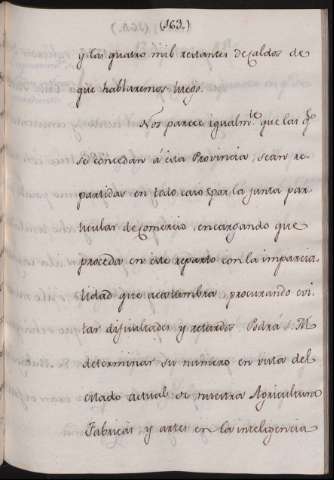 (163.)
y las quatro mil restantes de Caldos de
que hablaremos luego.
Nos parece igualmte. que las qe.
se concedan á esta Provincia, sean re-
partidas en todo caso por la Junta par-
ticular de Comercio, encargando que
proceda en este reparto con la imparcia-
lidad que acostumbra, procurando evi-
tar dificultades y retardos. Podrá S. M.
determinar su número en vista del
estado actual de nuestra Agricultura
Fabricas, y artes en la inteligencia